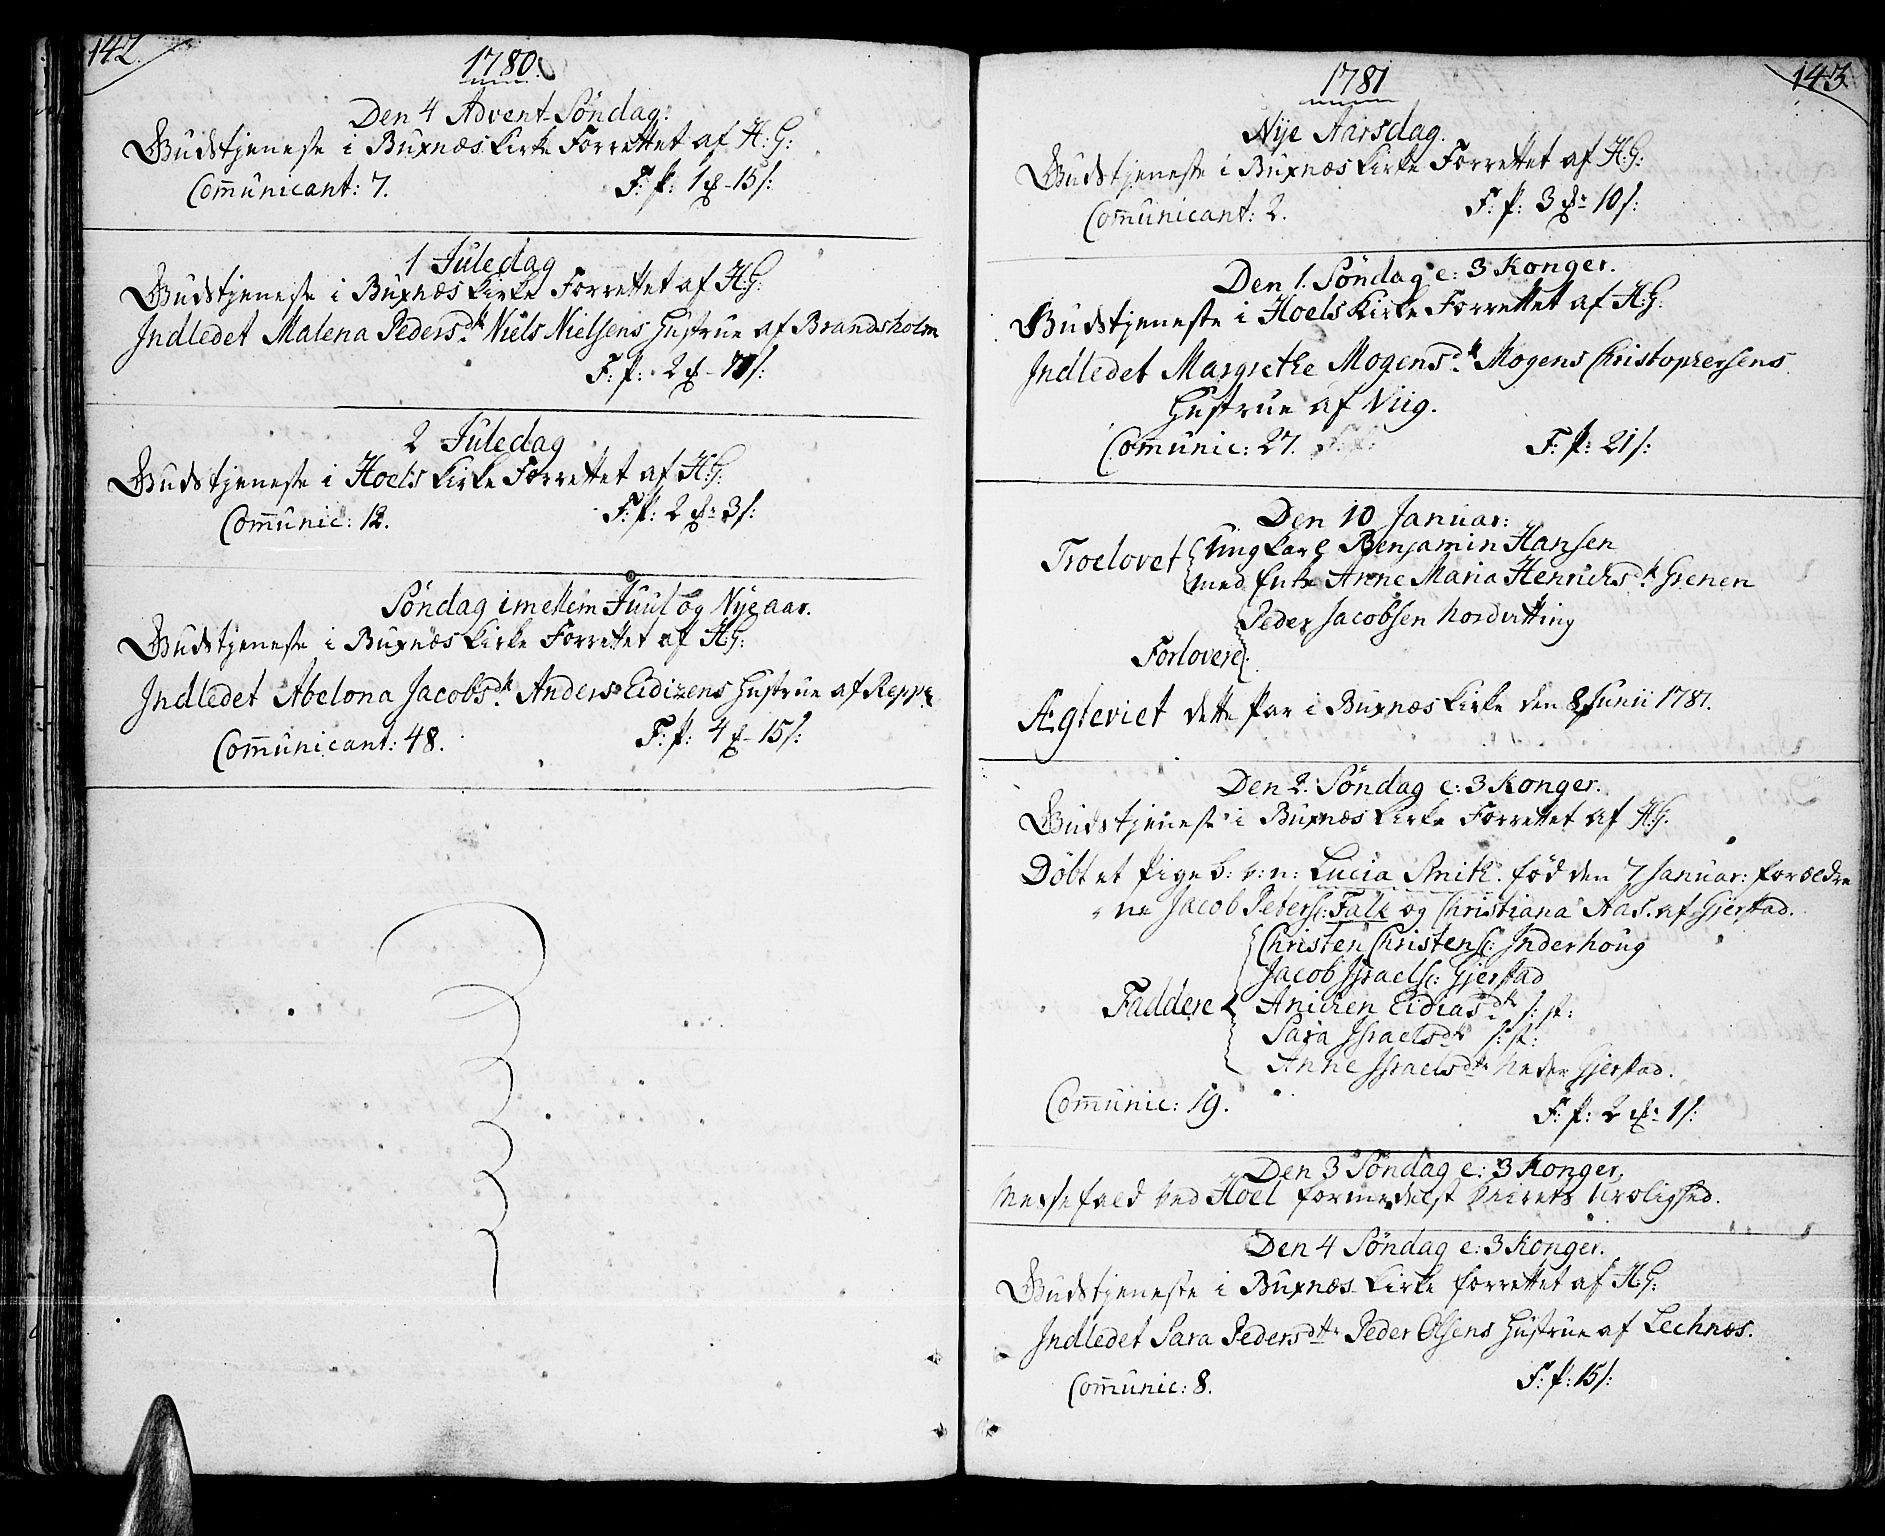 142.
1780.
Den 4 Advent-Söndag.
Gudstjeneste i Buxnæs Kirke Forrettet af H: G:
Com̄unicant: 7. F: p: 1 - 15 s:
1 Juledag
Gudstjeneste i Buxnæs Kirke Forrettet af H: G:
Indledet Malena Peders dtr Niels Nielsens Hustrue af Brandsholm
F: p: 2 - s:
2 Juledag
Gudstjeneste i Hoels Kirke Forrettet af H: G:
Com̄unic: 12. F: p: 2 - 3 s:
Söndag imellem Juul og Nyeaar.
Gudstjeneste i Buxnæs Kirke Forrettet af H: G:
Indledet Abelona Jacobs dtr Anders Eidizens Hustrue af Reppe
Com̄unicant: 48. F: p: 4 - 15 s:
143.
1781
Nye Aarsdag.
Gudstjeneste i Buxnæs Kirke Forrettet af H: G:
Com̄unicant: 2. F: p: 3 - 10 s:
Den 1. Söndag e: 3 Konger.
Gudstjeneste i Hoels Kirke Forrettet af H: G:
Indledet Margrethe Mogens dtr Mogens Christophersens
Hustrue af Viig.
Com̄unic: 27. F: p: 21 s:
Den 10 Januar:
Troelovet Ung Karl Benjamin Hansen
med Enke Anne Maria Henrichs dtr Grenen
Peder Jacobsen
Forlovere
Ægteviet dette Par i Buxnæs Kirke den 8 Junii 1781.
Den 2. Söndag e: 3 Konger.
Gudstjeneste i Buxnæs Kirke Forrettet af H: G.
Döbt et Pige b: v: n: Lucia Smith. föd den 7 Januar: forældre
ne Jacob Peders: Falk og Christiana Aas. af Gjerstad.
Christen Christens: Inderhoug
Jacob Israels: Gjerstad
Faddere Anichen Eidias dtr s: st:
Sara Israels dtr s: st:
Anne Israels dtr Neder Gjerstad.
Com̄unic: 19. F: p: 2 - 1 s:
Den 3 Söndag e: 3 Konger.
Messefald ved Hoel formedelst Veirets Urolighed.
Den 4 Söndag e: 3 Konger.
Gudstjeneste i Buxnæs Kirke forrettet af H: G:
Indledet Sara Peders dtr Peder Olsens Hustrue af Lechnæs.
Com̄unic: 8. F: p: 15 s: